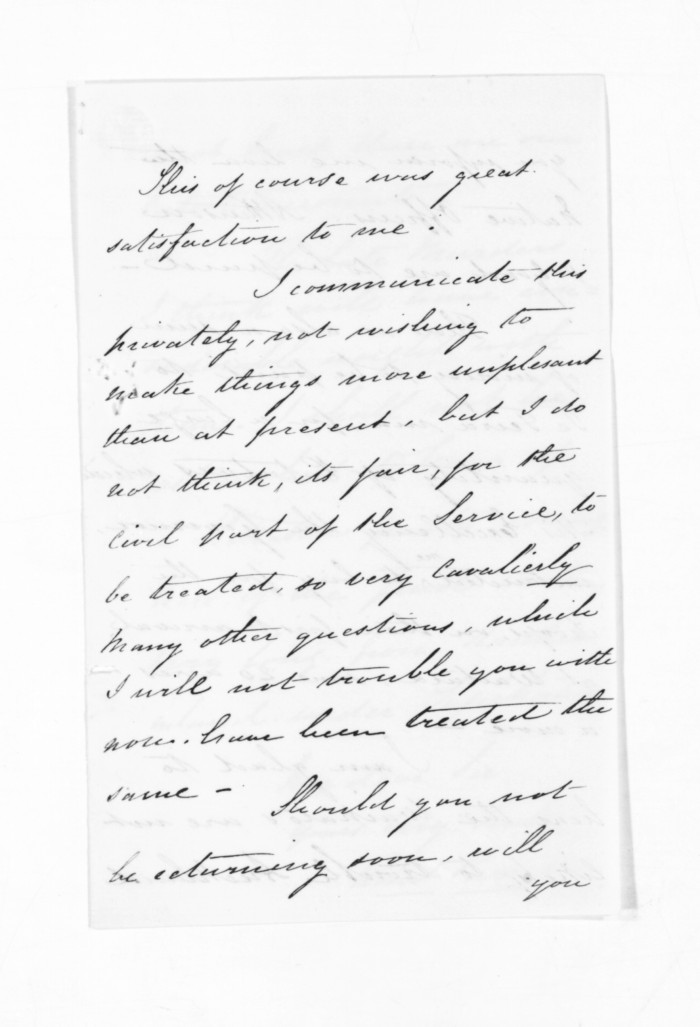 This of course was great
satisfaction to me.
I communicate this
privately, not wishing to
make things more unplesant
than at present, but I do
not think, its fair, for the
civil part of the Service, to
be treated, so very Cavalierly
Many other questions, which
I will not trouble you with
now. have been treated the
same -
Should you not
be returning soon, will
you